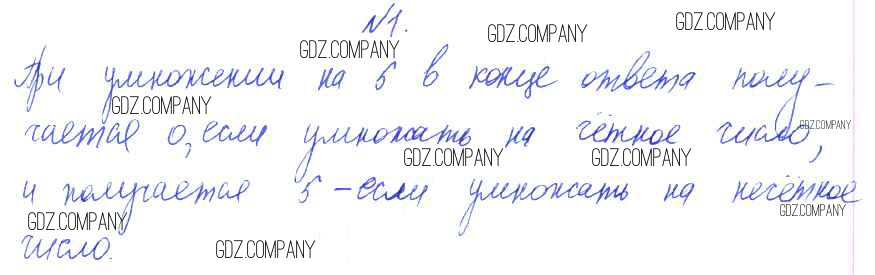 №1.
GDZ.COMPANY GDZ.COMPANY GDZ.COMPANY
При умножении на 5 в конце ответа полу-
GDZ.COMPANY
чается 0, если умножать на чётное число,
GDZ.COMPANY
GDZ.COMPANY GDZ.COMPANY
и получается 5 - если умножать на нечётное
GDZ.COMPANY GDZ.COMPANY
число.
GDZ.COMPANY